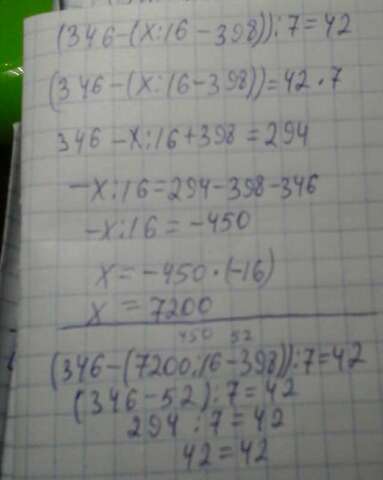 (346-(x:16-398)):7=42
(346-(x:16-398))=42·7
346-x:16+398=294
-x:16=294-398-346
-x:16=-450
x=-450·(-16)
x=7200
450 52
(346-(7200:16-398)):7=42
(346-52):7=42
294:7=42
42=42